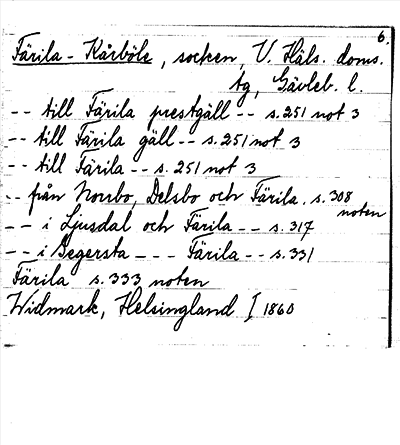 6.
Färila - Kårböle, socken, V. Häls. doms.
tg, Gävleb. l.
-- till Färila prestgäll -- s. 251 not 3
-- till Färila gäll -- s. 251 not 3
-- till Färila -- s. 251 not 3
-- från Norrbo, Delsbo och Färila. s. 308
noten
-- i Ljusdal och Färila -- s. 317
-- i Segersta --- Färila -- s. 331
Färila s. 333 noten
Widmark, Helsingland I 1860